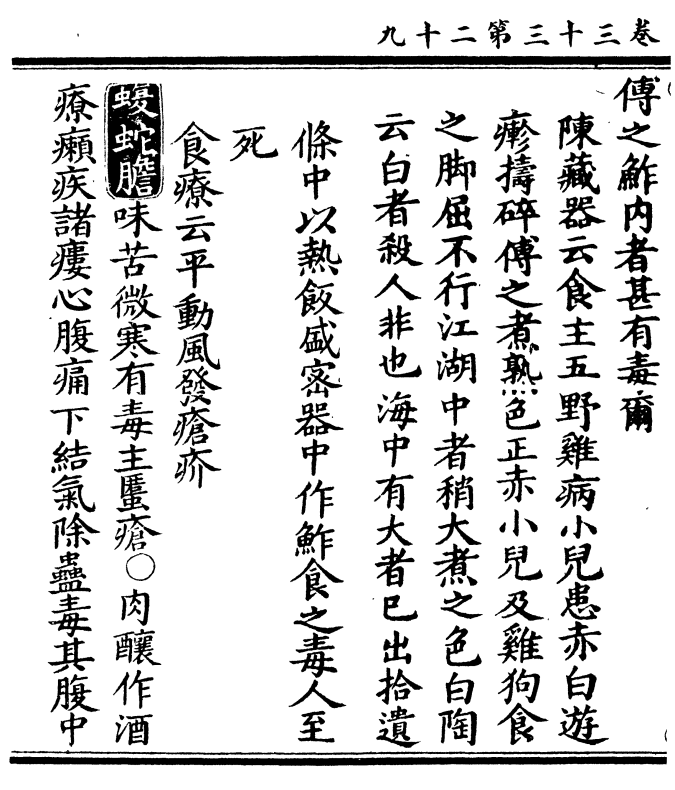 卷三十三第二十九
傅之鮓内者甚有毒爾
陳藏器云食主五野雞病小兒患赤白遊
㾦擣碎傅之煮熟色正赤小兒及雞狗食
之脚屈不行江湖中者稍大煮之色白陶
云白者殺人非也海中有大者已出拾遺
條中以熱飯盛密器中作鮓食之毒人至
死
食療云平動風發瘡疥
蝮蛇膽味苦微寒有毒主䘌瘡○肉釀作酒
療癩疾諸瘻心腹痛下結氣除蠱毒其腹中